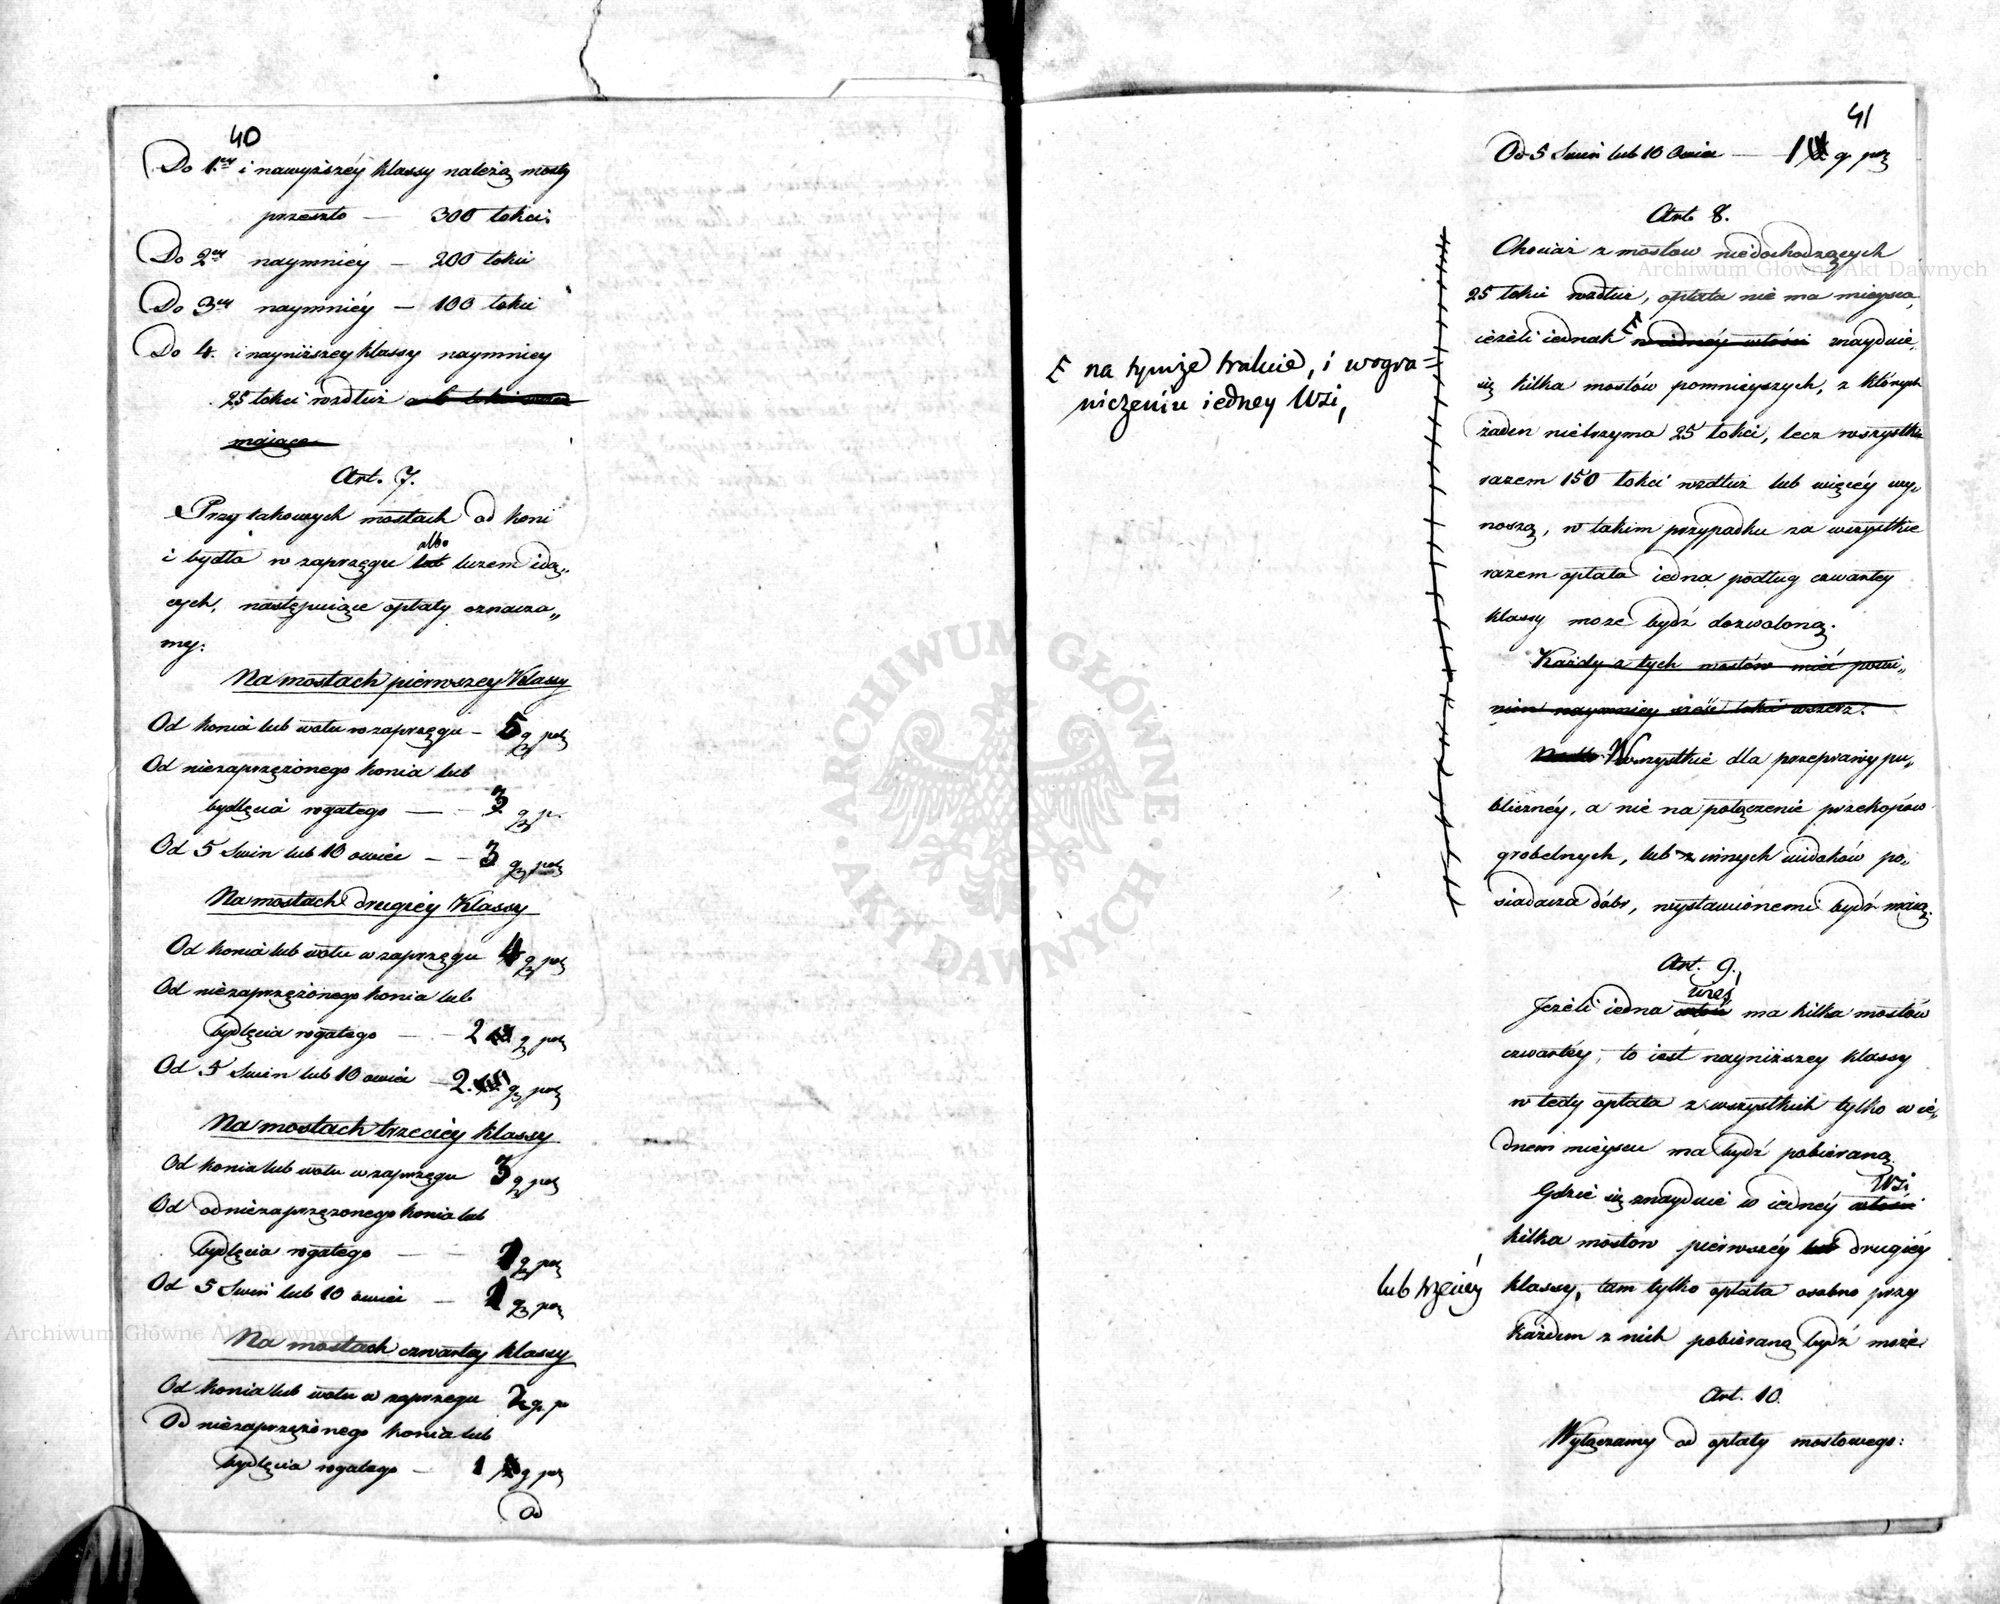 40
Do 1ey i nawyższéy klassy należą mosty
przeszło — 300 łokci.
Do 2ey naymniéy — 200 łokci
Do 3ey naymniéy — 100 łokci
Do 4. i nayniższey klassy naymniey
25 łokci wzdłuż
maiące
Art. 7.
Przy takowych mostach od koni
albo
i bydła w zaprzęgu lub luzem idą„
cych, następuiące opłaty oznacza„
my:
Na mostach pierwszey Klassy
Od konia lub wołu w zaprzęgu – 5 g pol
Od niezaprzężonego konia lub
bydlęcia rogatego — 3 g p.
Od 5 Swin lub 10 owiec — 3 g pol
Na mostach drugiéy Klassy
Od konia lub wołu w zaprzęgu 4 g pol
Od niezaprzężonego konia lub
bydlęcia rogatego — 2 g pol
Od 5 Swin lub 10 owiec — 2. g pol
Na mostach trzeciéy klassy
Od konia lub wołu w zaprzęgu 3 g pol
Od od niezaprzężonego konia lub
bydlęcia rogatego — g pol
Od 5 Swiń lub 10 owiec — g pol
Na mostach czwartey klassy
Od konia lub wołu w zaprzegu 2 g. p
Od niezaprzężonego konia lub
bydlęcia rogatego — 1 g pol
Od
41
Od 5 Swiń lub 10 Owiec — 1 g. pol
Art. 8.
Chociaż z mostów niedochodzących
25 łokci wzdłuż, opłata nie ma mieysca,
ieżeli iednak w iednéy włości znayduie
się kilka mostów pomnieyszych, z których
żaden nietrzyma 25 łokci, lecz wszystkie
razem 150 łokci wzdłuż lub więcéy wy„
noszą, w takim przypadku za wszystkie
razem opłata iedna podług czwartey
klassy może bydź dozwoloną.
Każdy z tych mostów mieć powi„
nien naymniey sześć łokci wszerz.
Wszystkie dla przeprawy pu„
bliczney, a nie na połączenie przekopów
grobelnych, lub z innych widoków po„
siadacza dóbr, wystawionemi bydź maią.
E na tymże trakcie, i w ogra=
niczeniu iedney Wsi,
Art. 9.
wieś
Jeżeli iedna włość ma kilka mostów
czwartéy, to iest nayniższey klassy
wtedy opłata z wszystkich tylko w ie„
dnem mieyscu ma bydź pobieraną.
Wsi
Gdzie się znayduie w iednéy włości
kilka mostow pierwszéy lub drugiéy
lub trzeciéy klassy, tam tylko opłata osobno przy
każdem z nich pobieraną bydź może
Art. 10.
Wyłączamy od opłaty mostowego:
Archiwum Główne Akt Dawnych
Archiwum Główne Akt Dawnych
ARCHIWUM GŁÓWNE
AKT DAWNYCH